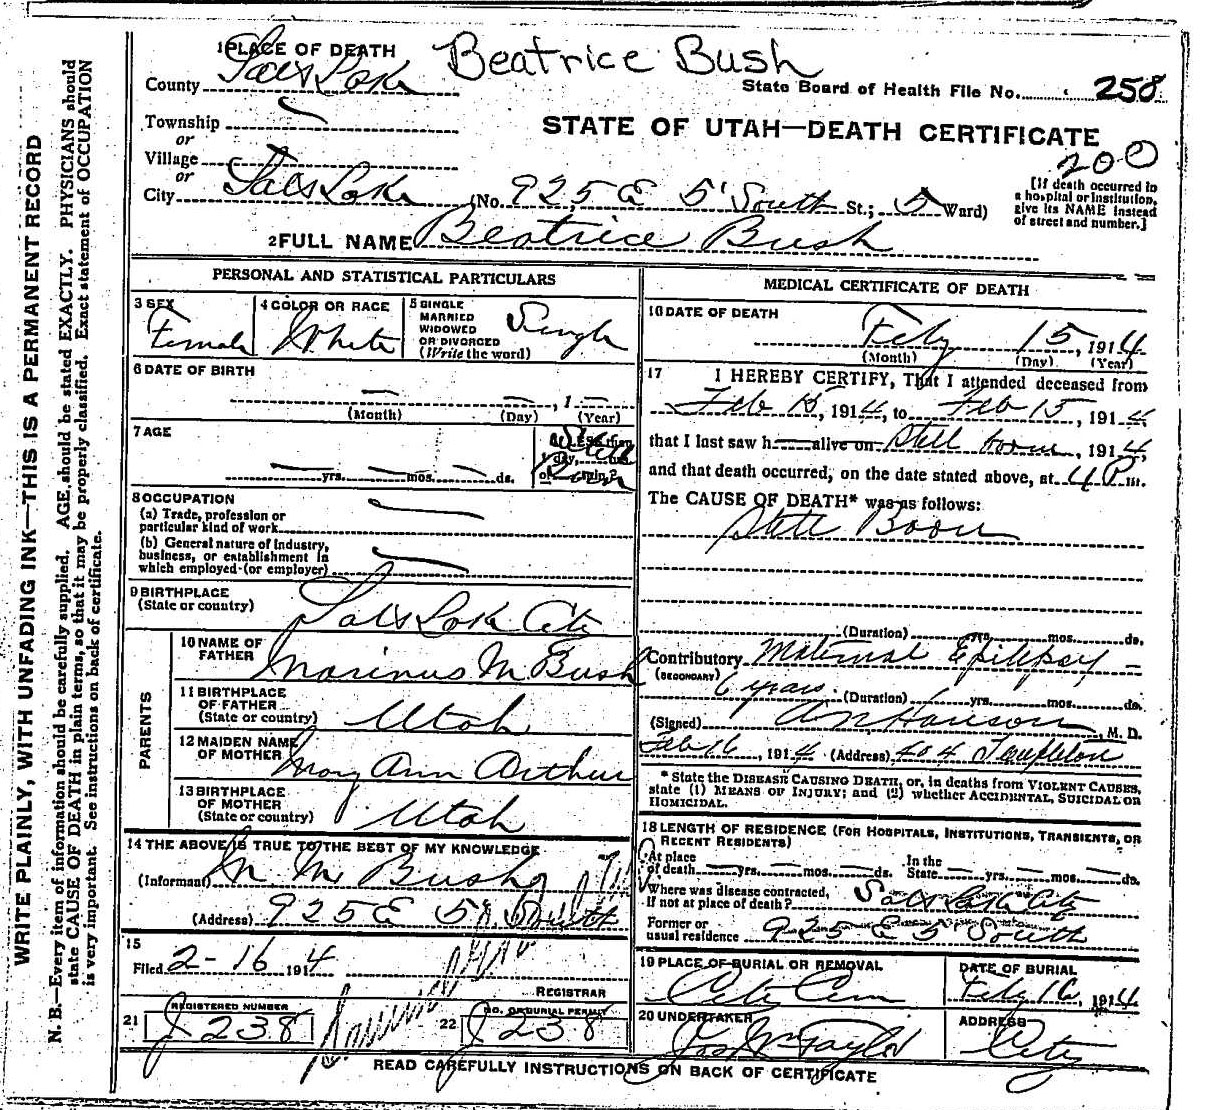 Beatrice Bush
1 PLACE OF DEATH
County Salt Lake
State Board of Health File No. 258
Township
or
Village
or
STATE OF UTAH—DEATH CERTIFICATE
200
City Salt Lake (No. 925 E 5' South St.; 5 Ward)
[If death occurred in
a hospital or institution,
give its NAME instead
of street and number.]
2 FULL NAME Beatrice Bush
PERSONAL AND STATISTICAL PARTICULARS
3 SEX
Female
4 COLOR OR RACE
White
5 SINGLE
MARRIED
WIDOWED
OR DIVORCED
(Write the word)
Single
6 DATE OF BIRTH
— — , 1 —
(Month) (Day) (Year)
7 AGE
yrs. mos. ds.
If LESS than
1 day, hrs.
or min.?
Still Born
8 OCCUPATION
(a) Trade, profession or
particular kind of work
(b) General nature of industry,
business, or establishment in
which employed (or employer)
9 BIRTHPLACE
(State or country) Salt Lake City
PARENTS
10 NAME OF
FATHER Marinus M Bush
11 BIRTHPLACE
OF FATHER
(State or country) Utah
12 MAIDEN NAME
OF MOTHER Mary Ann Arthur
13 BIRTHPLACE
OF MOTHER
(State or country) Utah
14 THE ABOVE IS TRUE TO THE BEST OF MY KNOWLEDGE
(Informant) M M Bush
(Address) 925 E 5. South
15
Filed 2-16 1914
REGISTRAR
21 REGISTERED NUMBER
J 238
22 NO. OF BURIAL PERMIT
J 238
MEDICAL CERTIFICATE OF DEATH
16 DATE OF DEATH
Feby 15, 1914
(Month) (Day) (Year)
17 I HEREBY CERTIFY, That I attended deceased from
Feb 15, 1914, to Feb 15, 1914
that I last saw h— alive on Still born, 1914,
and that death occurred, on the date stated above, at 4 P m.
The CAUSE OF DEATH* was as follows:
Still Born
(Duration) yrs. mos. ds.
Contributory Maternal Epilepsy —
(SECONDARY) 6 years. (Duration) 6 yrs. mos. ds.
(Signed) A N Hanson, M. D.
Feb 16, 1914 (Address) 404 Templeton
* State the DISEASE CAUSING DEATH, or, in deaths from VIOLENT CAUSES,
state (1) MEANS OF INJURY; and (2) whether ACCIDENTAL, SUICIDAL OR
HOMICIDAL.
18 LENGTH OF RESIDENCE (FOR HOSPITALS, INSTITUTIONS, TRANSIENTS, OR
RECENT RESIDENTS)
At place
of death yrs. mos. ds.
In the
State yrs. mos. ds.
Where was disease contracted,
If not at place of death? Salt Lake City
Former or
usual residence 925 E 5' South
19 PLACE OF BURIAL OR REMOVAL
City Cem
DATE OF BURIAL
Feby 16, 1914
20 UNDERTAKER
Jos Wm Taylor
ADDRESS
City
READ CAREFULLY INSTRUCTIONS ON BACK OF CERTIFICATE
WRITE PLAINLY, WITH UNFADING INK—THIS IS A PERMANENT RECORD
N. B.—Every item of information should be carefully supplied. AGE should be stated EXACTLY. PHYSICIANS should
state CAUSE OF DEATH in plain terms, so that it may be properly classified. Exact statement of OCCUPATION
is very important. See instructions on back of certificate.